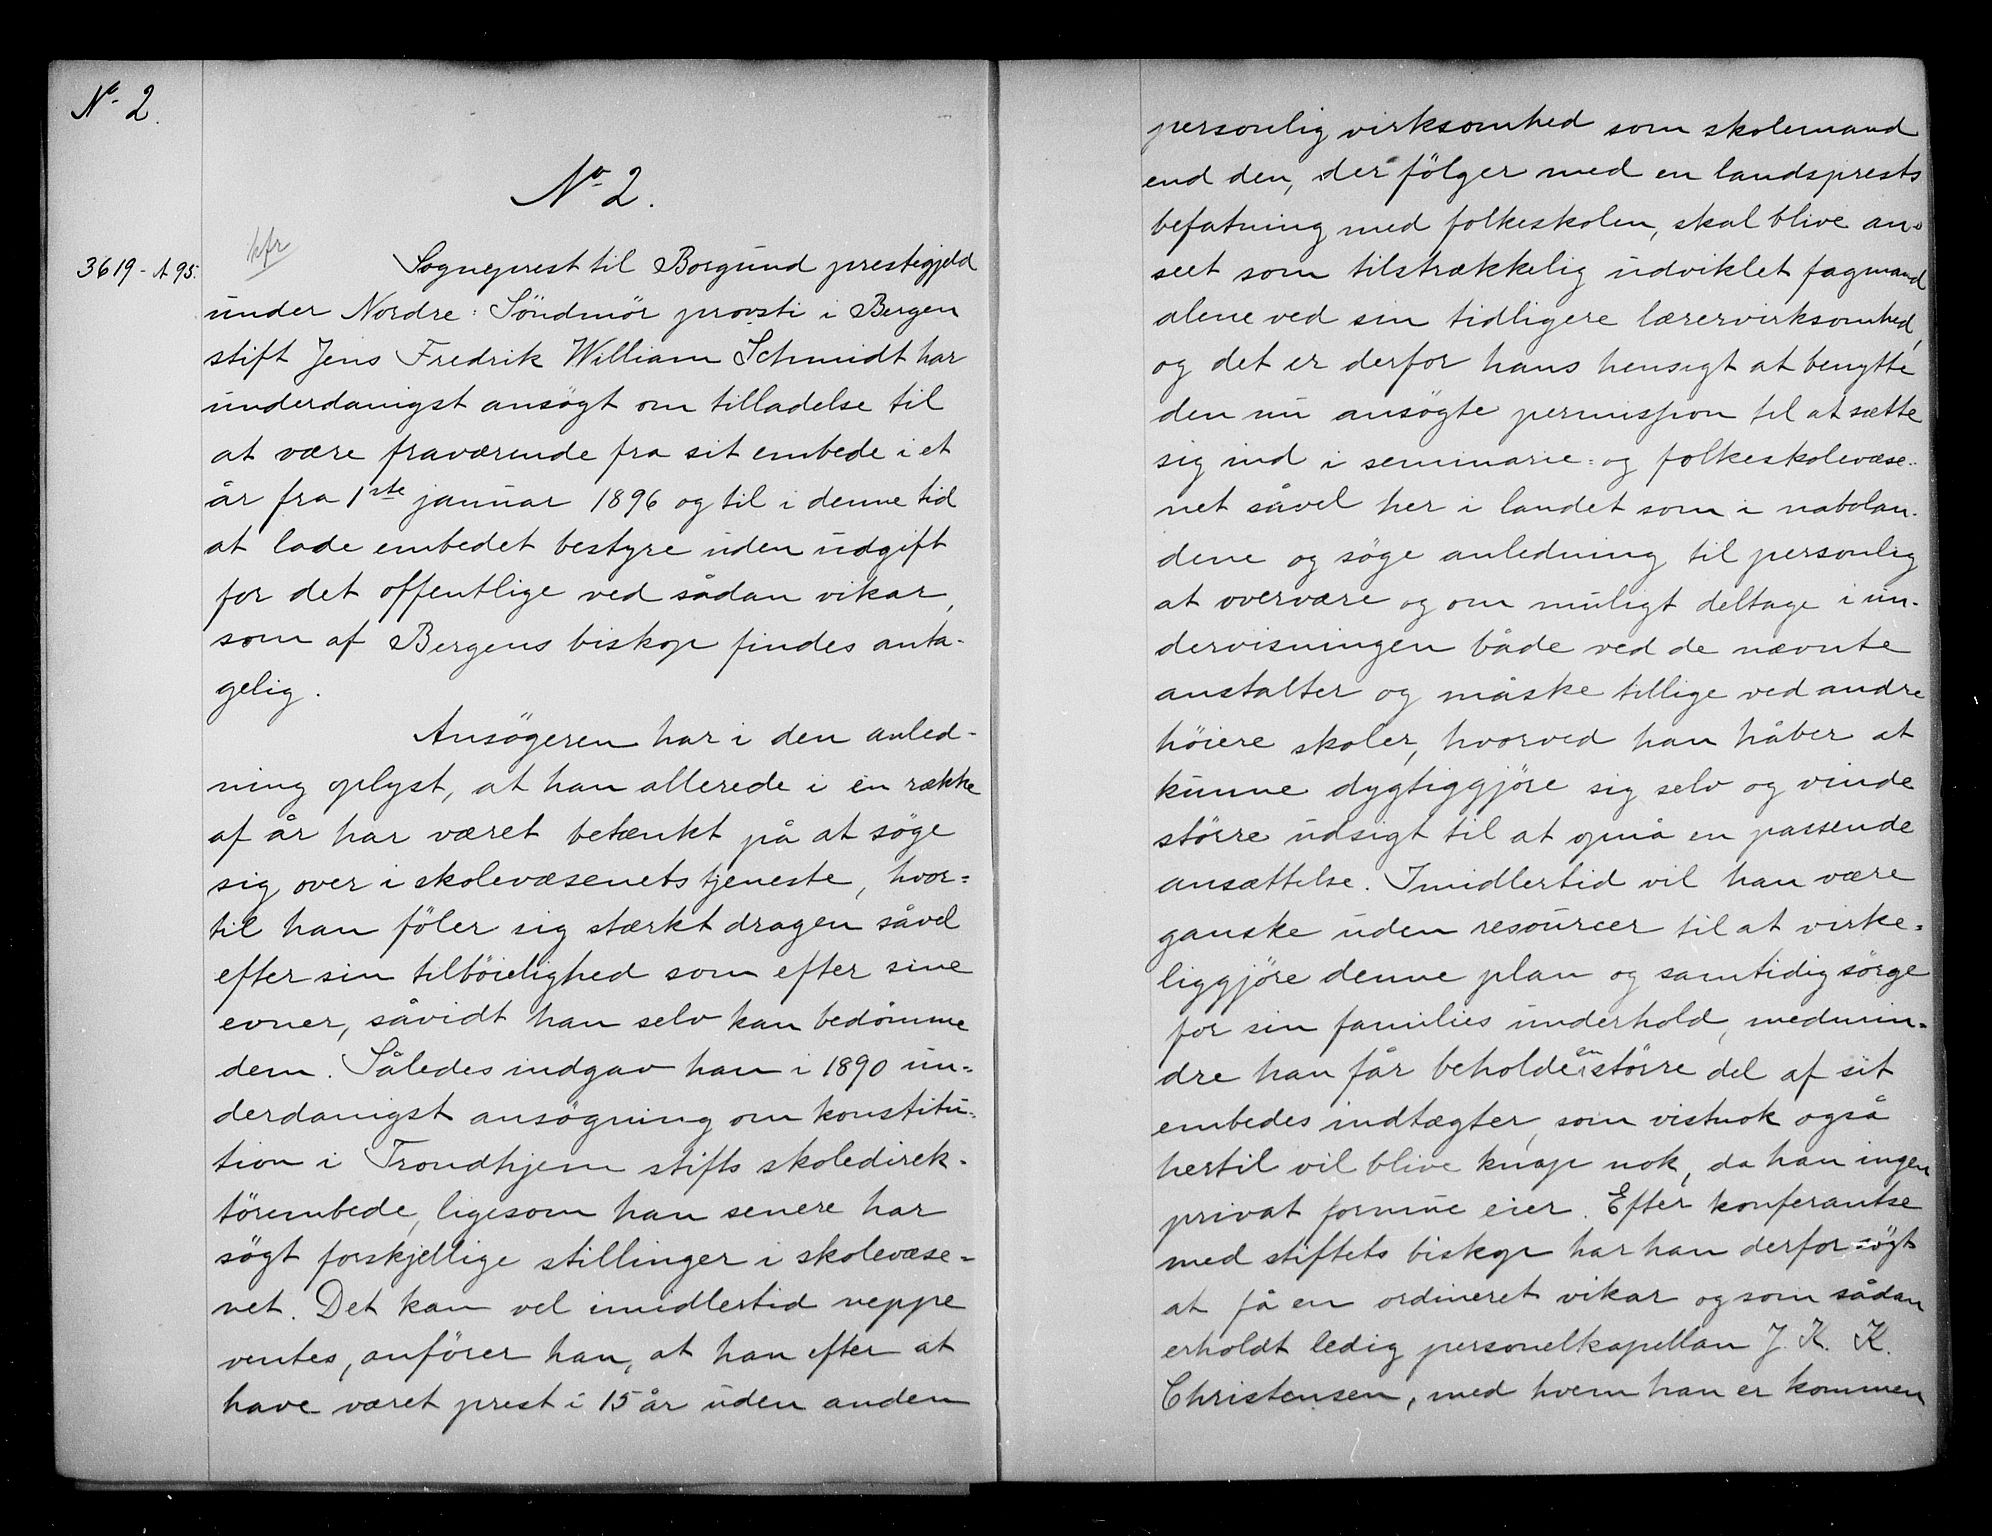 No 2.
No 2.
kfr
3619 - A 95.
Sogneprest til Borgund prestegjeld
under Nordre = Söndmör provsti i Bergen
stift Jens Fredrik William Schmidt har
underdanigst ansøgt om tilladelse til
at være fraværende fra sit embede i et
år fra 1ste januar 1896 og til i denne tid
at lade embedet bestyre uden udgift
for det offentlige ved sådan vikar,
som af Bergens biskop findes anta-
gelig.
Ansögeren har i den anled-
ning oplyst, at han allerede i en række
af år har været betænkt på at söge
sig over i skolevæsenets tjeneste, hvor=
til han föler sig stærkt dragen såvel
efter sin tilböielighed som efter sine
evner, såvidt han selv kan bedömme
dem. Således indgav han i 1890 un=
derdanigst ansögning om konstitu-
tion i Trondhjem stifts skoledirek-
törembede, ligesom han senere har
sögt forskjellige stillinger i skolevæse=
net. Det kan vel imidlertid neppe
ventes, anförer han, at han efter at
have været prest i 15 år uden anden
personlig virksomhed som skolemand
end den, der fölger med en landsprests
befatning med folkeskolen, skal blive an=
seet som tilstrækkelig udviklet fagmand
alene ved sin tidligere lærervirksomhed,
og det er derfor hans hensigt at benytte
den nu ansögte permission til at sætte
sig ind i seminarie= og folkeskolevæse-
net såvel her i landet som i nabolan-
dene og söge anledning til personlig
at overvære og om muligt deltage i un-
dervisningen både ved de nævnte
anstalter og måske tillige ved andre
höiere skoler, hvorved han håber at
kunne dygtiggjöre sig selv og vinde
större udsigt til at opnå en passende
ansættelse. Imidlertid vil han være
ganske uden resourcer til at virke=
liggjöre denne plan og samtidig sörge
for sin families underhold, medmin-
dre han får beholde en större del af sit
embedes indtægter, som vistnok også
hertil vil blive knap nok, da han ingen
privat formue eier. Efter konferantse
med stiftets biskop har han derfor sögt
at få en ordineret vikar og som sådan
erholdt ledig personelkapellan J. K. K.
Christensen, med hvem han er kommen